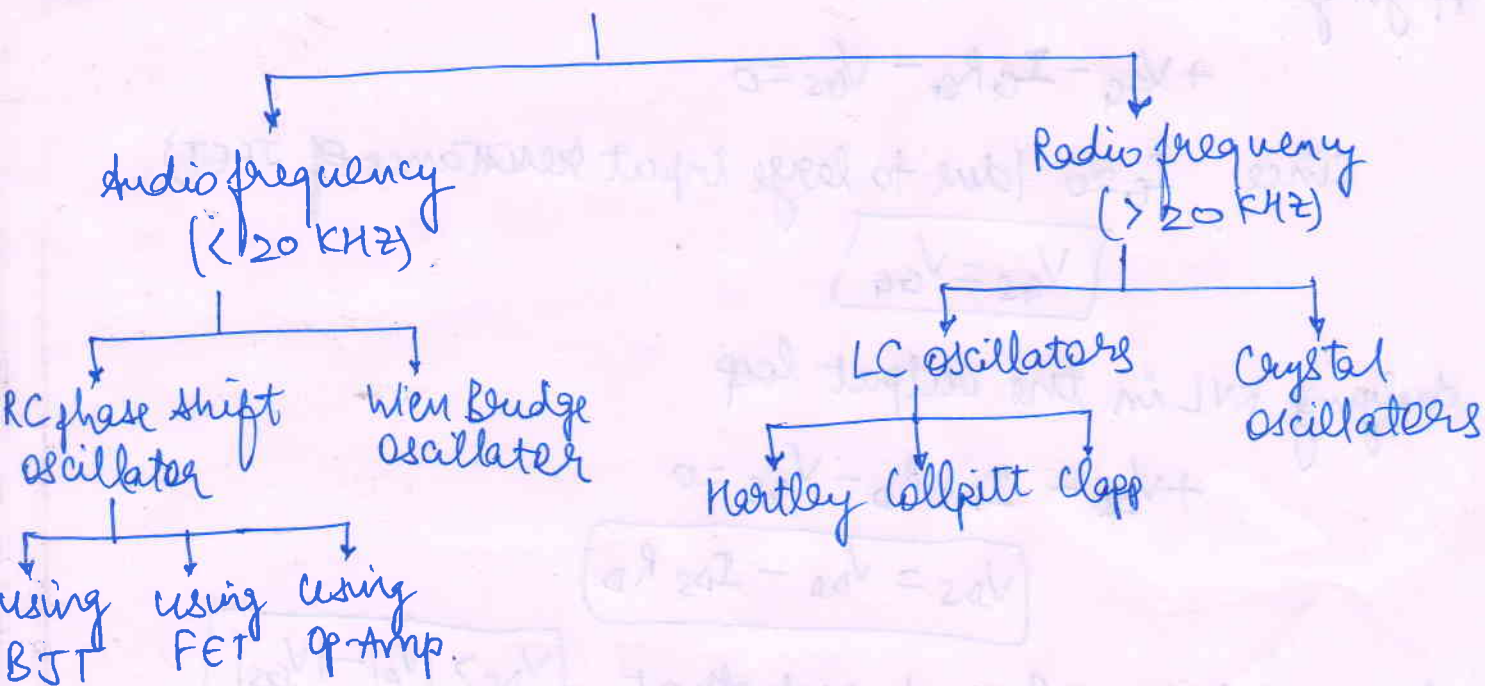 Audio frequency
(< 20 KHZ)
Radio frequency
(> 20 KHZ)
RC phase shift
oscillator
Wien Bridge
oscillator
LC oscillators
Crystal
oscillators
Hartley Collpitt Clapp
using
BJT
using
FET
using
Op-Amp.